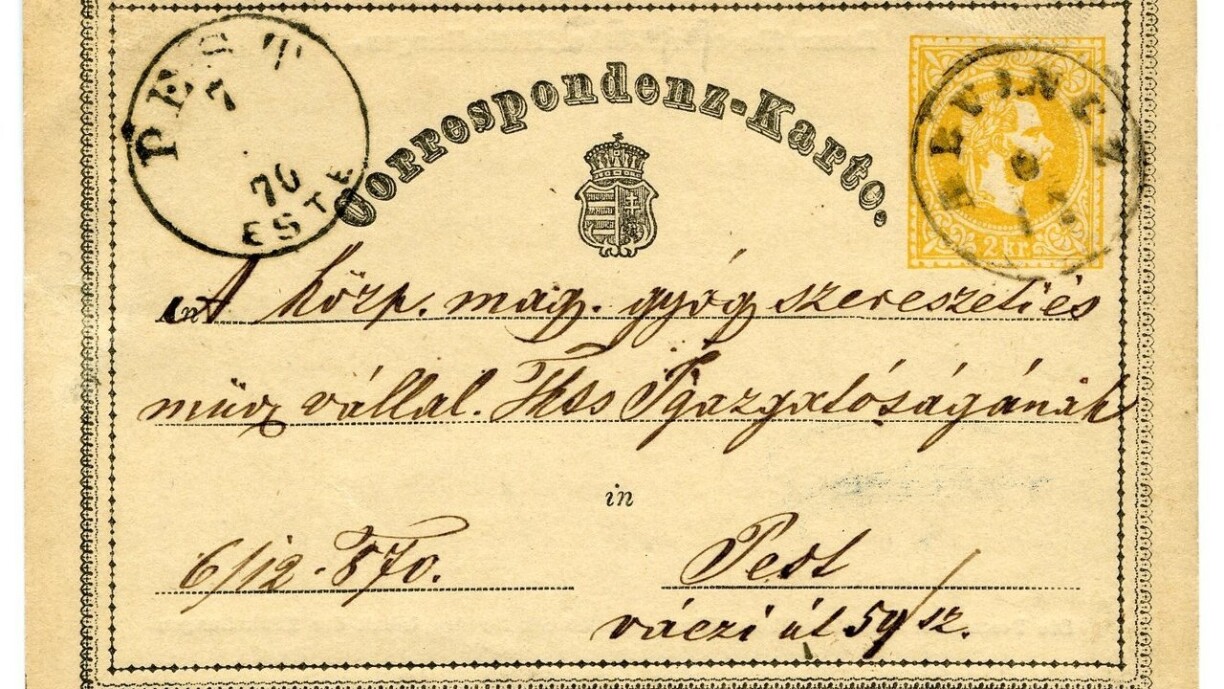 PEST
7
70
ESTE
Correspondenz-Karte.
2 kr.
An A közp. mag. gyógyszerészeti és
műv vállal. Tkts Igazgatóságának
in
6/12. 870. Pest
váczi út 59 sz.